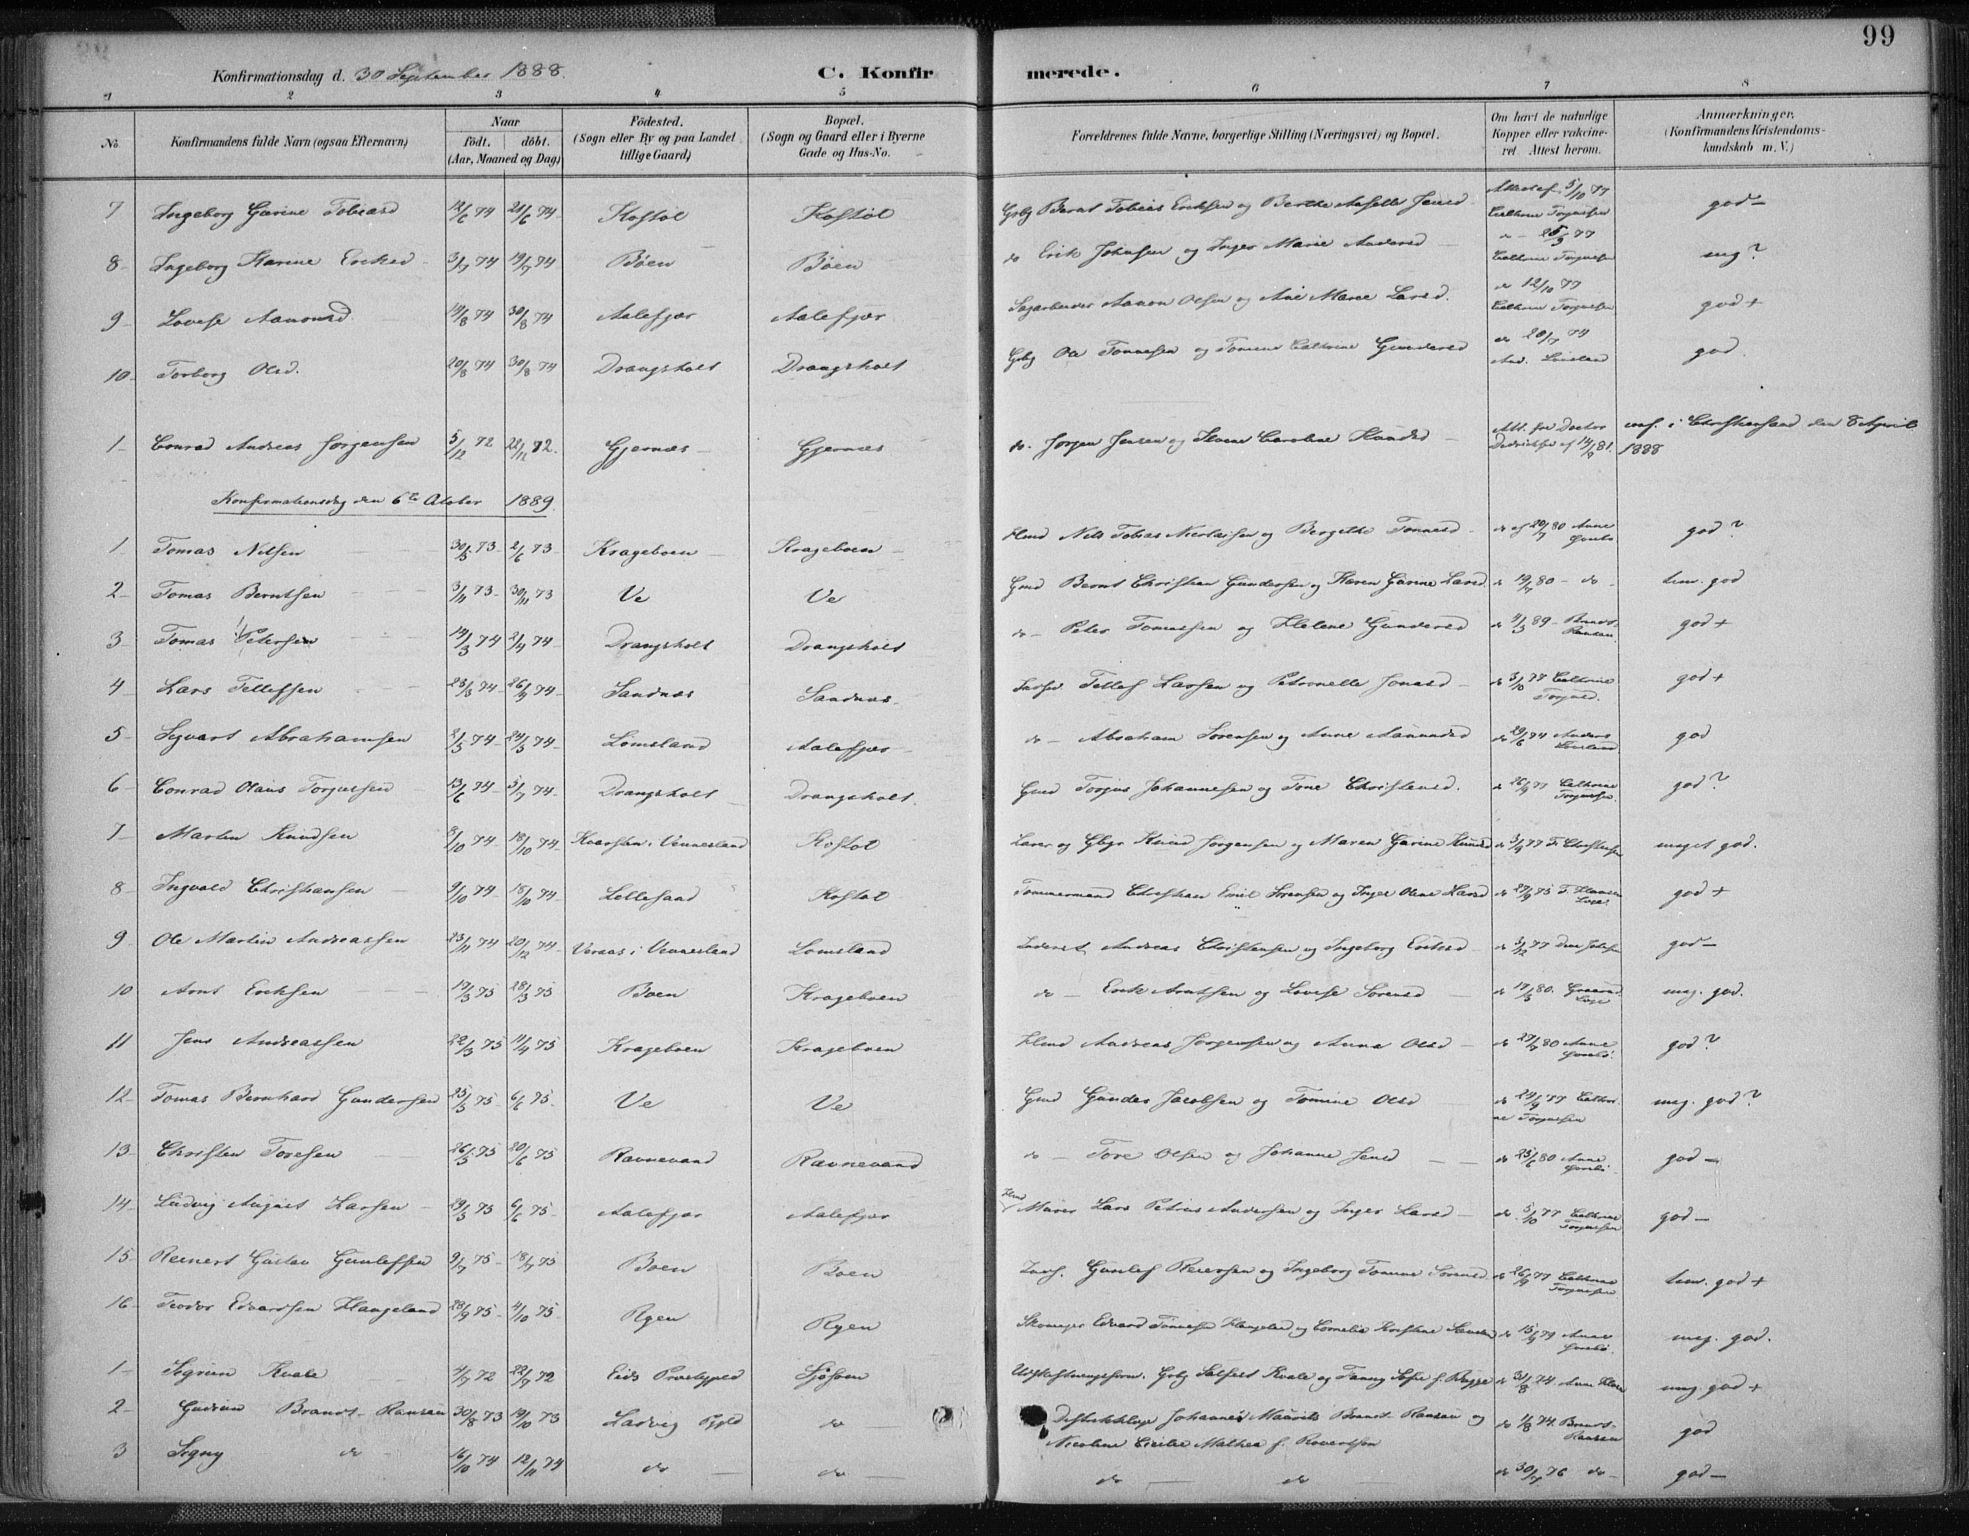 99
Konfirmationsdag d. 30 September 1888.
C. Konfir merede.
1 2 3 4 5 6 7 8
No.
Konfirmandens fulde Navn (ogsaa Efternavn)
Naar
født. døbt.
(Aar, Maaned og Dag)
Fødested.
(Sogn eller By og paa Landet
tillige Gaard)
Bopæl.
(Sogn og Gaard eller i Byerne
Gade og Hus-No.
Forældrenes fulde Navne, borgerlige Stilling (Næringsvei) og Bopæl.
Om havt de naturlige
Kopper eller vakcine-
ret. Attest herom.
Anmærkninger.
(Konfirmandens Kristendoms-
kundskab m. V.)
7 Ingeborg Garine Tobiasd 12/6 74 21/6 74 Kostøl Kostøl Gbg Bernt Tobias Eriksen og Berthe Aslette Jensd Attest af 5/10 77 Cathrine Torgussen god -
8 Ingeborg Karine Eriksd 3/7 74 19/7 74 Bøen Bøen do Erik Johnsen og Inger Marie Andersd do 25/9 77 Cathrine Torgussen mg ?
9 Lovise Aanonsd 14/8 74 30/8 74 Aalefjær Aalefjær Sagarbeider Aanon Olsen og Ane Marie Larsd. do 12/10 77 Cathrine Torgussen god +
10 Torborg Olsd. 20/8 74 30/8 74 Drangsholt Drangsholt Gbg Ole Tønnesen og Tomine Cathrine Gundersd do 20/7 74 And. god.
1 Conrad Andreas Jørgensen 5/12 72 22/12 72. Gjernæs Gjernæs do. Jørgen Jensen og Caroline Knudsd Att. fra Doctor af 14/9 81. conf. i Christiansand den 8 April
1888
Konfirmationsdag den 6te Otober 1889.
1 Tomas Nilsen 30/3 73 2/6 73 Krageboen Krageboen Hmd Nils Tobias Nicolaisen og Bergithe Tønnesd do af 20/9 80 Anne god ?
2 Tomas Berntsen 3/11 73 30/11 73 Ve Ve Gmd Bernt Christian Gundersen og Karen Garine Larsd do 19/9 80 - do - tem. god
3 Tomas Petersen 14/3 74 2/4 74 Drangsholt Drangsholt do - Peter Tomassen og Helene Gundersd do 4/3 89 - Brandt Ransau. god +
4 Lars Tellefsen 23/3 74 26/4 74 Sandnæs Sandnæs. Tellef Larsen og Petronelle Jonasd do 3/10 77 Cathrine Torgusd. god +
5 Sigvart Abrahamsen 2/5 74 24/5 74 Lomsland Aalefjær do - Abraham Sørensen og Anne Aanundsd do 29/6 74 Anders god
6 Conrad Olaus Torgussen 13/6 74 5/7 74 Drangsholt Drangsholt Gmd Torgus Johannesen og Tone Christensd. do 26/9 77 Cathrine Torgussen. god ?
7 Martin Knudsen 2/10 74 18/10 74 Kvarsten i Vennesland Kostøl Lærer og Gbgr Knud Jørgensen og Maren Garine Knudsd do 3/9 77 F. Christensen meget god.
8 Ingvald Christiansen 9/10 74 18/10 74 Lillesand Kostøl Tømmermand Christian Emil Sørensen og Inger Oline Larsd do 27/9 75 F. Hansen god +
9 Ole Martin Andreassen 23/11 74 20/12 74 Veraas i Vennesland Lomsland Inderst Andreas Christensen og Ingeborg Eriksd do 3/12 77 god -
10 Arnt Eriksen 17/3 75 28/3 75 Boen Krageboen do - Erik Arntsen og Lovise Sørensd do 17/5 80. meg. god.
11 Jens Andreassen 22/3 75 11/4 75 Krageboen Krageboen Hmd Andreas Jørgensen og Anna Olsd do 27/9 80 Anne god ?
12 Tomas Bernhard Gundersen 25/5 75 6/6 75 Ve Ve Gmd Gunder Jacobsen og Tomine Olsd do 24/9 77 Cathri- ne Torgussen meg. god ?
13 Christen Toresen 26/5 75 20/6 75 Ravnevand Ravnevand do - Tore Olsen og Johanne Jensd do 25/6 80 Anne god -
14 Ludvig August Larsen 29/3 75 6/6 75 Aalefjær Aalefjær Hmd Murer Lars Petrus Andersen og Inger Larsd do 5/10 77 Cathrine Torgussen god -
15 Reinert Gustav Gunlefsen 9/7 75 18/7 75 Boen Boen Gunlef Reiersen og Ingeborg Tomine Sørensd do 26/9 77 Cathrine Torgussen tem. god +
16 Teodor Edvardsen Haugeland 28/9 75 4/10 75 Ryen Ryen Skomager Edvard og Cornelia Kristine do 15/9 79 Anne meg. god.
1 Sigrun Kvale 4/7 72 22/9 72 Eids Sjøhven Gbg Salfest Kvale og Fanny Sofie f. Bugge do 31/8 74 Anne meg god +
2 Gudrun Brandt-Ransau 30/8 73 19/10 73 Ladvig Pgld do Johannes Mauritz Brandt-Ransau og do 1/8 74. Brandt- Ransau god
Nicoline Cicilie Mathea f. Rovertson
3 Signy do 16/10 74 12/11 74 do do do do do 30/7 76 do god -